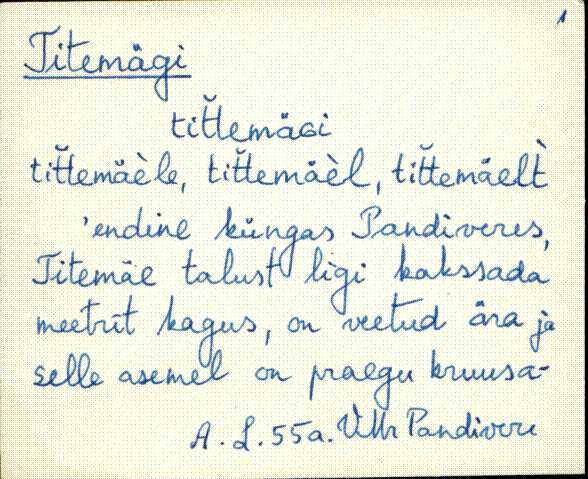 1
Titemägi
tit̆temäGi
tit̆temäèle, tit̆temäèl, tit̆temäelt̀
'endine küngas Pandiveres,
Titemäe talust ligi kakssada
meetrit kagus, on veetud ära ja
selle asemel on praegu kruusa-
A. L. 55a. VMr Pandivere